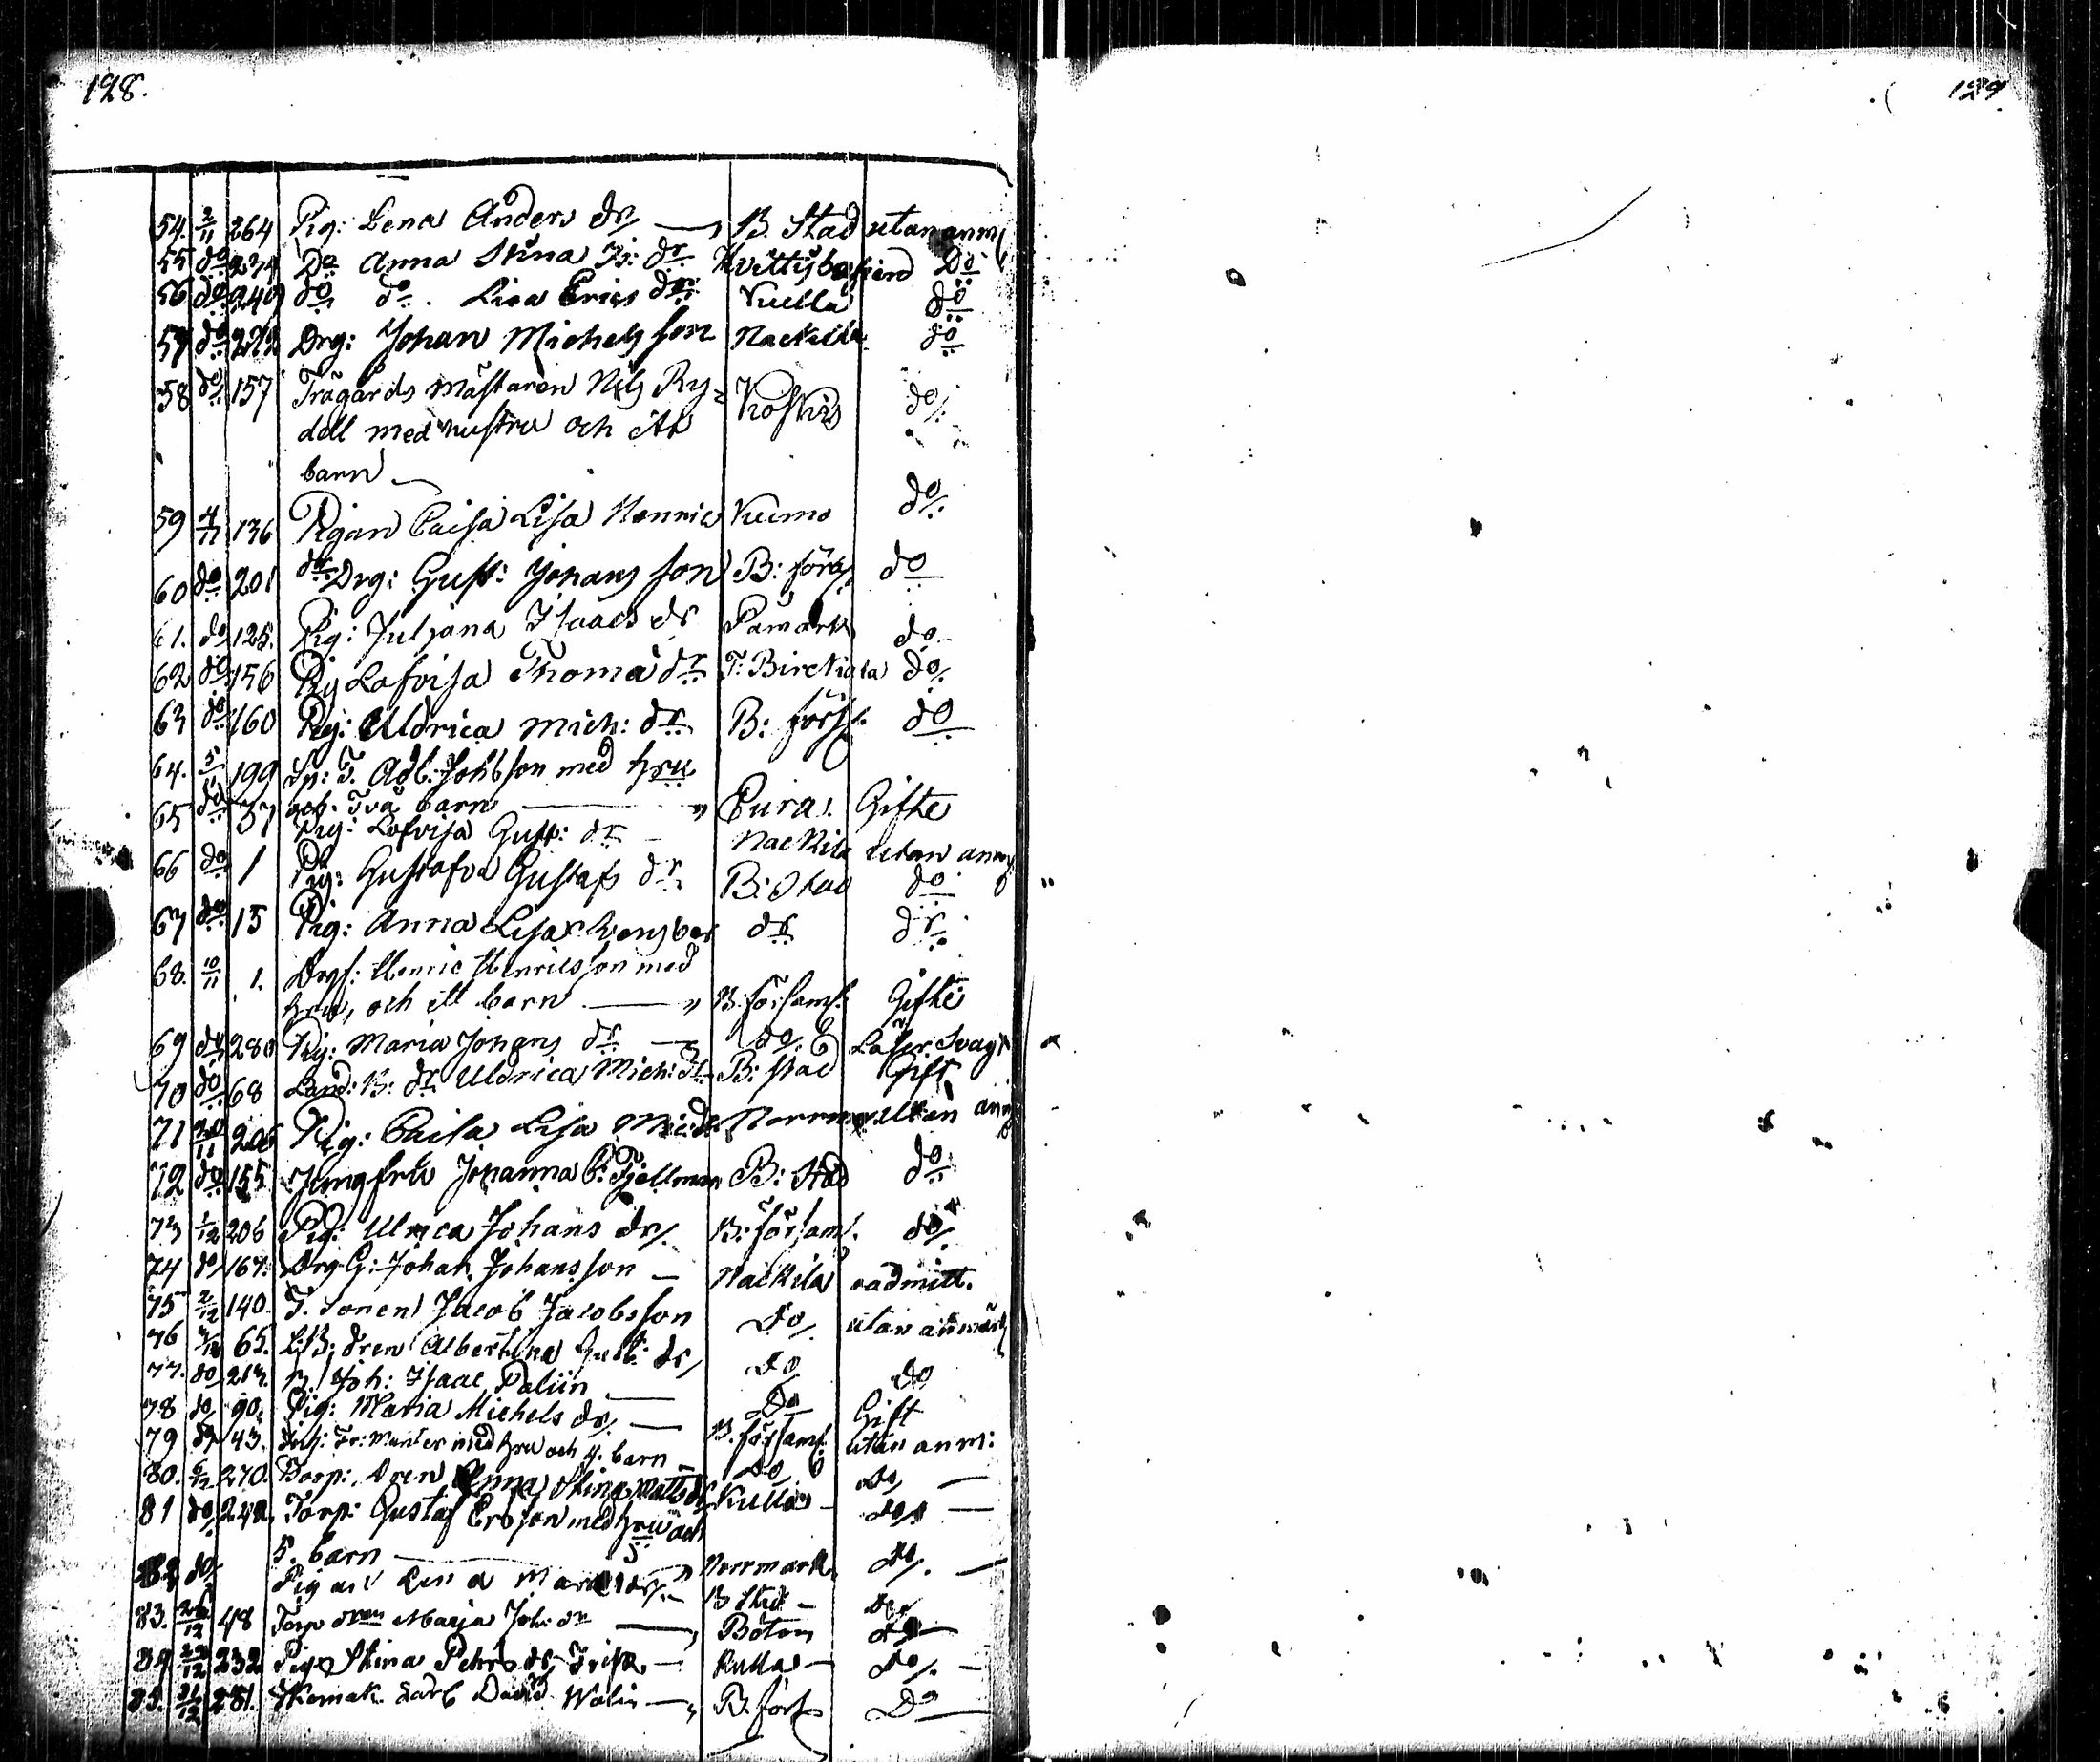 128.
129
54. 2/11 264 Pig: Lena Anders dr B. Stad utan anm
55 do 234 Do Anna Stina Is: dr Hvittisbofierd Do
56 do 240 do do. Lisa Erics dr Kulla do
57 do 272 Drg: Johan Michels son Nackila do
58 do 157 Trägårds mästaren Nils Ry= Koskis do
dell med hustru och ett
barn
59 4/11 136 Pigan Caisa Lisa Henrics Kumo do
60 do 201 dr Drg: Gust: Johans son B: förs. do
61. do 125. Pig: Juljana Isaacs dr Påmark do
62 do 156 Pig Lovisa Thoma dr T: Birckiala do
63 do 160 Pig: Uldrica Mich: dr B: förs. do
64. 5/11 199 Sp: T. Adl: Johsson med hru
och Två barn Eura. Gifte
65 do 37 Pig: Lovisa Gust: dr Nackila utan anm
66 do 1 Pig: Gustafva Gustafs dr B: Stad do
67 do 15 Pig: Anna Lisa do dr
68. 10/11 1. Drgs: Henric Henricsson med
hru, och ett barn B. församl. Gifte
69 do 280 Pig: Maria Johans dr do Läser Svagt
70 do 68 Land: B: dr Uldrica Mich: dr B: stad Gift
71 20/11 206 Pig: Caisa Lisa Norrm utan anm
72 do 155 Jungfru Johanna C: Fjellman B: Stad do
73 1/12 206 Pig: Ulrica Johans dr B: församl. do
74 do 167. Drg G: Johan Johansson Nackila oadmitt.
75 2/12 140. T. Sonen Jacob Jacobsson Do utan anmärk
76 4/12 65. dren Albertina Gust: dr Do do
77. do 213. Joh: Isaac Paliin Do Gift
78 do 90. Pig: Maria Michels dr B. församl. utan anm:
79 do 43. Inh: Fr: Munter med hru och 4. barn Do Do
80. 6/12 270. Torp: dren Anna Stina Matts dr Kulla do
81 do 242. Torp: Gustaf Ersson med hru och
5. barn Norrmark do
82 do Pigan Lena B Stad do
83. 48 Torp dren Marja Joh: dr Botom do
84 232 Pig Stina Pehrs dr Frisk Kulla do
85. 281. Skomak Carl David Walin B. förs Do